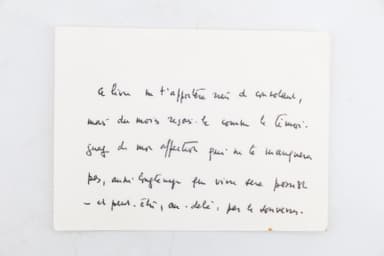 Ce livre ne t'apportera rien de consolant,
mais du moins reçois-le comme le témoi-
gnage de mon affection qui ne te manquera
pas, aussi longtemps que vivre sera possible
– et peut-être, au-delà, par le souvenir.